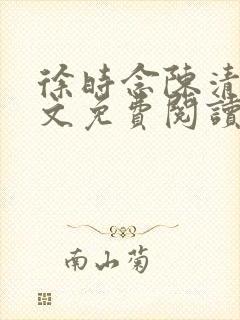 徐時念陳清
文免費閱讀
南山菊